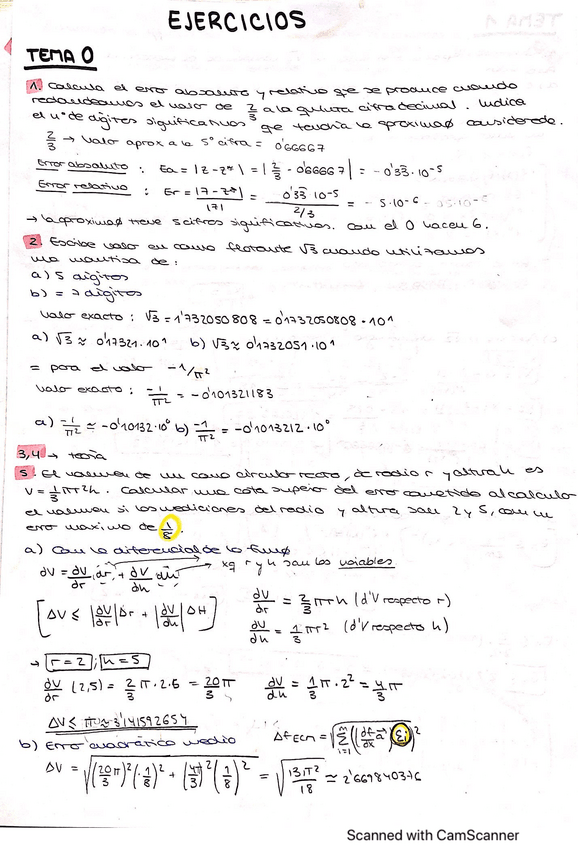 EJERCICIOS
TEMA 0
1. Calcula el error absoluto y relativo que se produce cuando
redondeamos el valor de 2/3 a la quinta cifra decimal. Indica
el nº de dígitos significativos que tendría la aproximaº considerada.
2/3 → Valor aprox a la 5º cifra = 0'66667
Error absoluto : Ea = |z - z*| = |2/3 - 0'66667| = -0'33 · 10^-5
Error relativo : Er = |z - z*| / |z| = 0'33 · 10^-5 / 2/3 = -5 · 10^-6
→ la aproximaº tiene 5 cifras significativas. Con el 0 hacen 6.
2. Escribe valor en coma flotante √3 cuando utilizamos
una mantisa de :
a) 5 dígitos
b) = 7 dígitos
Valor exacto : √3 = 1'732050808 = 0'1732050808 · 10^1
a) √3 ≈ 0'17321 · 10^1 b) √3 ≈ 0'1732051 · 10^1
= para el valor -1/π²
Valor exacto : -1/π² = -0'101321183
a) -1/π² ≈ -0'10132 · 10^0 b) -1/π² = -0'1013212 · 10^0
3,4 → teoría
5. El volumen de un cono circular recto, de radio r y altura h es
V = 1/3 πr²h. Calcular una cota superior del error cometido al calcular
el volumen si las mediciones del radio y altura son 2 y 5, con un
error máximo de 1/8.
a) Con la diferencial de la funº
dV = dV/dr dr + dV/dh dh → xq r y h son las variables
[ΔV ≤ |dV/dr| Δr + |dV/dh| ΔH]
dV/dr = 2/3 πrh (d'V respecto r)
dV/dh = 1/3 πr² (d'V respecto h)
→ r = 2 ; h = 5
dV/dr (2,5) = 2/3 π · 2 · 5 = 20/3 π dV/dh = 1/3 π · 2² = 4/3 π
ΔV ≤ π ≈ 3'141592654
b) Error cuadrático medio Δf ECM = √(∑ i=1 n ((df/dx a) εi)²
ΔV = √((20π/3)² (1/8)² + (4π/3)² (1/8)²) = √(13π²/18) ≈ 2'669840376
Scanned with CamScanner